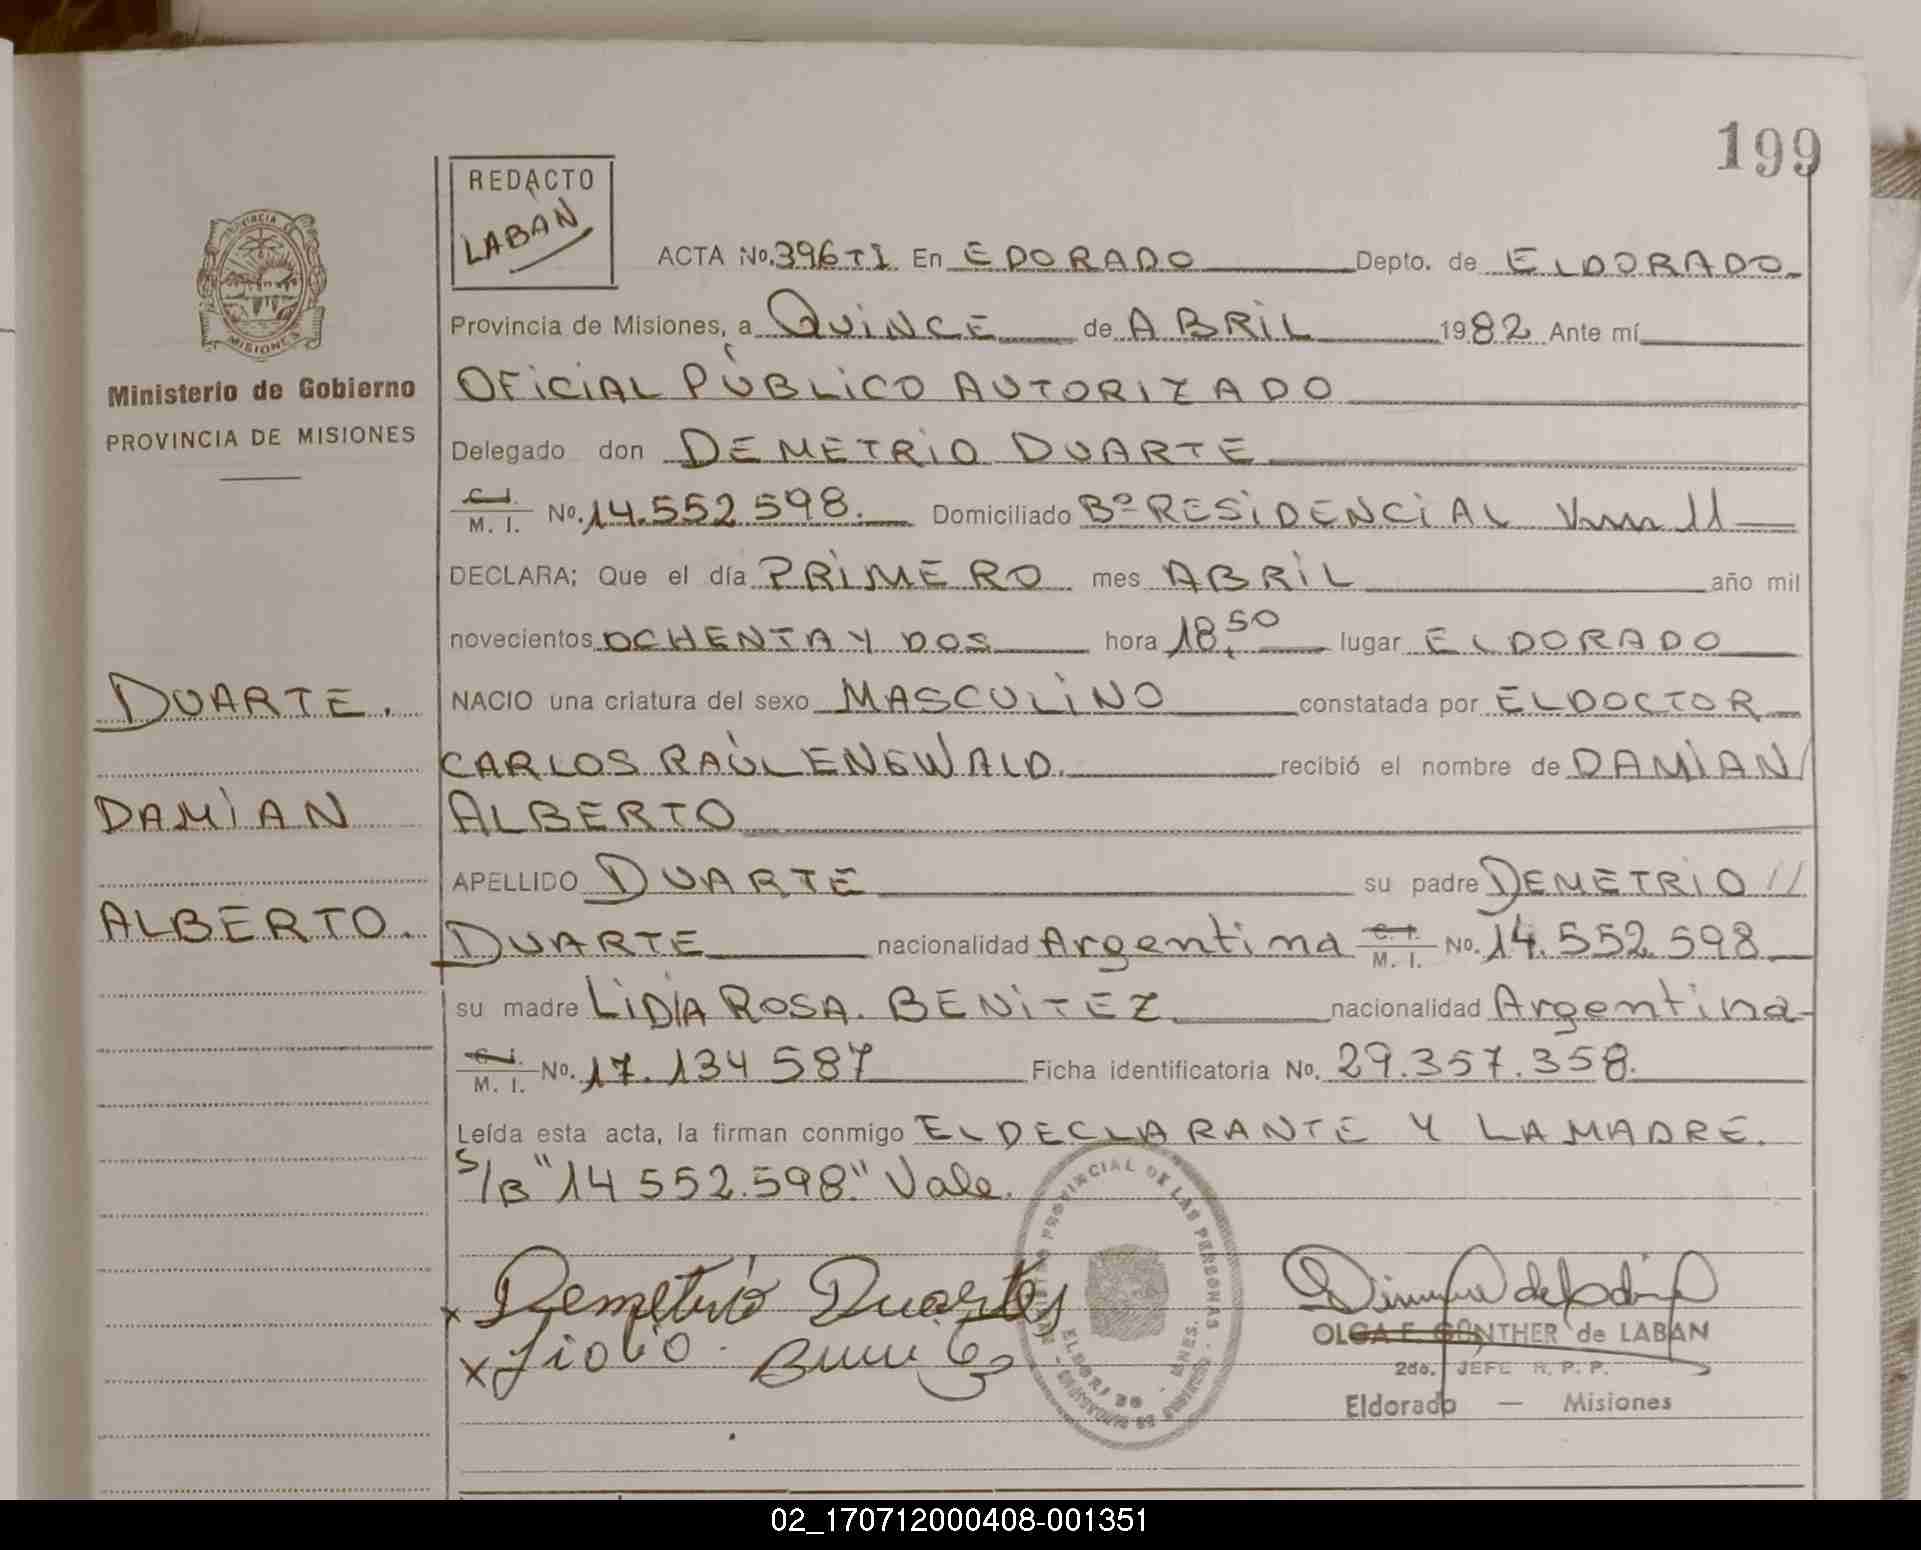 199
REDACTO
LABAN
PROVINCIA DE
MISIONES
ACTA No. 396 TI En EDORADO Depto. de ELDORADO
Provincia de Misiones, a QUINCE de ABRIL 1982 Ante mí
Ministerio de Gobierno
PROVINCIA DE MISIONES
OFICIAL PÚBLICO AUTORIZADO
Delegado don DEMETRIO DUARTE
C. I. / M. I. No. 14.552.598. Domiciliado Bº RESIDENCIAL
DECLARA; Que el día PRIMERO mes ABRIL año mil
novecientos OCHENTA Y DOS hora 18,50 lugar ELDORADO
NACIO una criatura del sexo MASCULINO constatada por EL DOCTOR
CARLOS RAÚL ENGWALD. recibió el nombre de DAMIAN/
ALBERTO
APELLIDO DUARTE su padre DEMETRIO //
DUARTE nacionalidad Argentina C. I. / M. I. No. 14.552.598
su madre LIDIA ROSA. BENITEZ nacionalidad Argentina
C. I. / M. I. No. 17.134 587 Ficha identificatoria No. 29.357.358.
Leída esta acta, la firman conmigo EL DECLARANTE Y LA MADRE.
S/B "14 552.598." Vale.
DUARTE.
DAMIAN
ALBERTO.
Demetrio Duarte
PROVINCIAL DE LAS PERSONAS
OLGA E. GÜNTHER de LABAN
2do. JEFE R. P. P.
Eldorado — Misiones
02_170712000408-001351